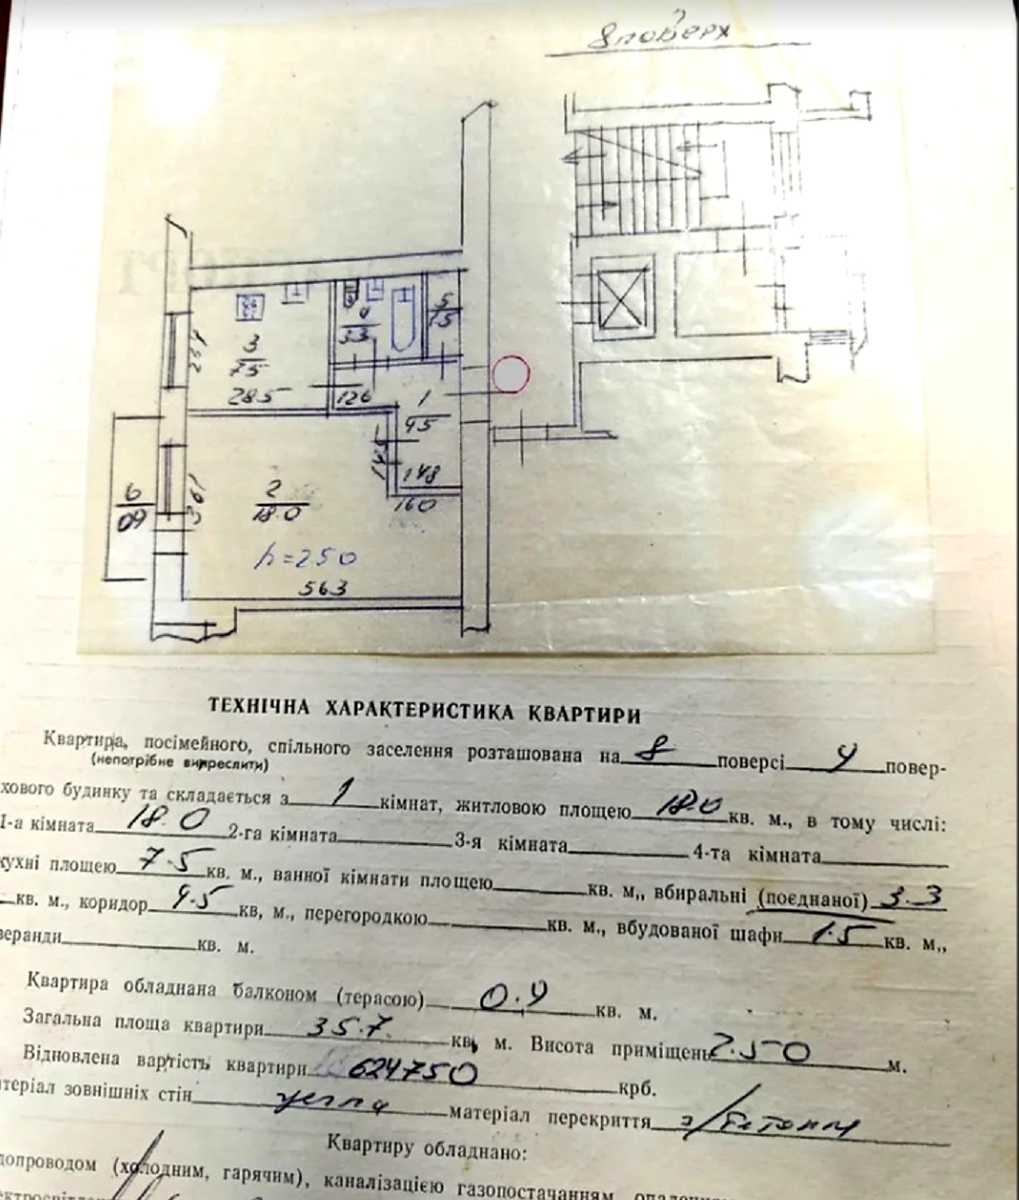 8 поверх
3
7.5
4
3.3
5
1.5
267
285
126
1
4.5
145
148
160
6
0.9
361
2
18.0
h=250
563
ТЕХНІЧНА ХАРАКТЕРИСТИКА КВАРТИРИ
Квартира, посімейного, спільного заселення розташована на 8 поверсі 9 повер-
(непотрібне викреслити)
хового будинку та складається з 1 кімнат, житловою площею 18.0 кв. м., в тому числі:
1-а кімната 18.0 2-га кімната 3-я кімната 4-та кімната
кухні площею 7.5 кв. м., ванної кімнати площею кв. м., вбиральні (поєднаної) 3.3
кв. м., коридор 4.5 кв, м., перегородкою кв. м., вбудованої шафи 1.5 кв. м.,
веранди кв. м.
Квартира обладнана балконом (терасою) 0.9 кв. м.
Загальна площа квартири 35.7 кв, м. Висота приміщень 2.50 м.
Відновлена вартість квартири 624750 крб.
теріал зовнішніх стін цегла матеріал перекриття з/бетонні
Квартиру обладнано:
допроводом (холодним, гарячим), каналізацією газопостачанням,